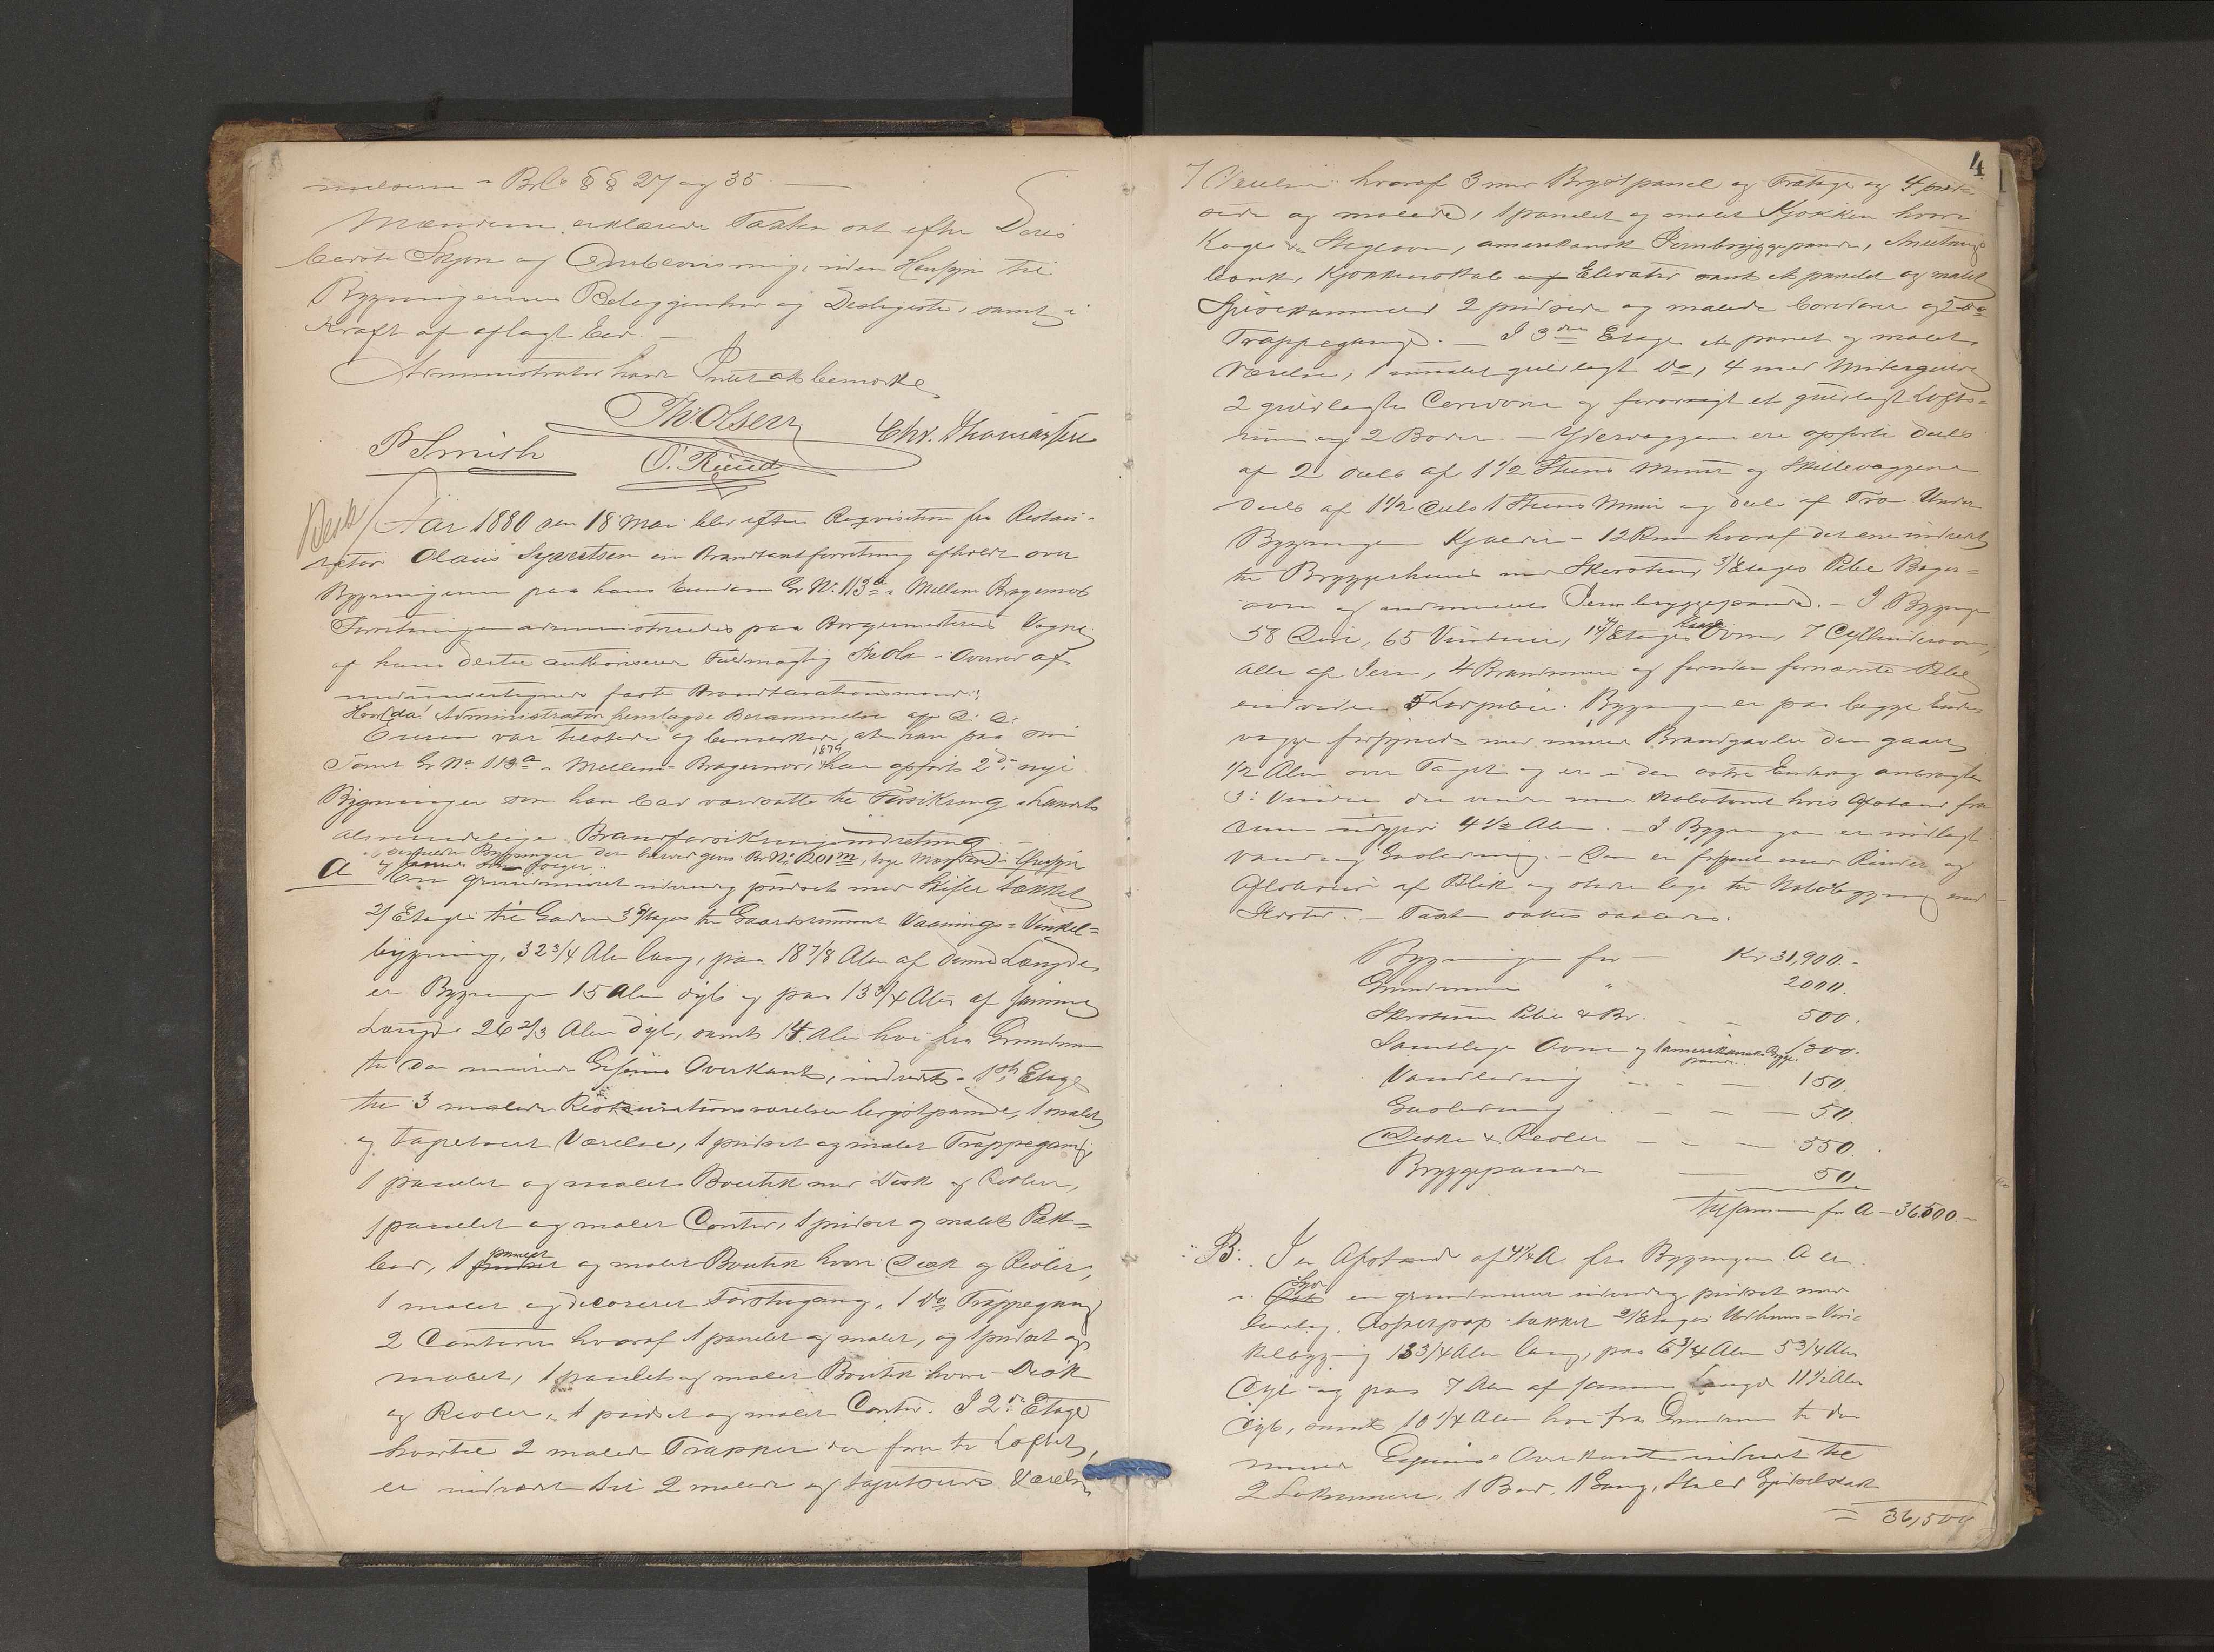 melsen i Brl. §§ 27 og 35
Mændene erklærede Taxten sat efter Deres
bedste Skjøn og Overbevisning, uden Hensyn til
Bygningernes Beliggenhed og Desligeste, samt i
Kraft af aflagt Eed. —
Administrator havde Intet at bemærke
Th. Olsen
Chr. Thomassen
P Smith
O. Ruud
Aar 1880 den 18 Mai blev efter Reqvisition fra Restau-
ratør Olaus Syvertsen en Brandtaxtforretning afholdt over
Bygningerne paa hans Eiendom Gr No. 113a i Mellem Bragernæs
Forretningen administreredes paa Borgermesterens Vegne
af hans dertil authoriserede Fuldmægtig Th Olsen i Overvær af
medundertegnede faste Brandtaxationsmænd:
Hvorda! Administrator fremlagde Berammelse
Eieren var tilstede og bemærkede, at han paa sin
Tomt Gr No 113a i Mellem Bragernæs, 1879 har opført 2de nye
Bygninger som han bad værdsatte til Forsikring i Landets
almindelige Brandforsikringsindretning —
A En grundmuret indvendig pudset med Skifer tækket
2/ Etages til Gaden 3 Etages til Gaardsrummet Vaanings= Vinkel=
bygning, 32 3/4 Alen lang, paa 18 7/8 Alen af denne Længde
er Bygningen 15 Alen dyb og paa 13 3/4 Alen af samme
Længde 26 2/3 Alen dyb, samt 14 Alen høi fra Grundmuren
til den murede Gesims Overkant, indredet i 1ste Etage
til 3 malede Restaurationsværelser brystpanelede, 1 malet
og tapetseret Værelse, 1 pudset og malet Trappegang,
1 panelet og malet Boutik med Disk og Reoler,
1 panelet og malet Contor, 1 pudset og malet Pak=
bod, 1 panelet og malet Boutik hvori Disk og Reoler,
1 malet og decoreret Forstugang, 1 do Trappegang
2 Contorer hvoraf 1 panelet og malet, og 1 pudset og
malet, 1 panelet og malet Boutik hvori Disk
og Reoler, 1 pudset og malet Contor. I 2den Etage
hvortil 2 malede Trapper der fører til Loftet,
er indredet til 2 malede og tapetserede Værelser,
4
7 Værelser hvoraf 3 med Brystpanel og Tratage og 4 pud-
sede og malede, 1 panelet og malet Kjøkken hvori
Koge & Stegeovn, amerikansk Jernbryggepande, Anretnings
bænk, Kjøkkenskab Elevator samt et panelet og malet
Spisekammer 2 pudsede og malede Coridorer og 2 do
Trappegange. — I 3die Etage et panelet og malet
Værelse, 1 umalet gulvlagt Do, 4 med Undergulve
2 gulvlagte Coridorer og forøvrigt et gulvlagt Lofts=
rum og 2 Boder. — Ydervæggene ere opførte deels
af 2 deels af 1 1/2 Steens Muur og Skillevæggene
deels af 1 1/2 deels 1 Steens Muur og deels af Træ Under
Bygningen Kjælder i 12 Rum hvoraf det ene indredet
til Bryggerhuus med Skorsteen 3/Etages Pibe Bager=
ovn og indmuret Jernbryggepande. — I Bygningen
58 Døre, 65 Vinduer, 14/ Etages Ovne, 7 Cylinderovne,
alle af Jern, 4 Brandmure og foruden fornævnte Pibe
endvidere 5 Løbpiber. Bygningen er paa begge Ende
vægge forsynede med murede Brandgavle der gaar
1/2 Alen over Taget og er i den østre Endevæg anbragte
3: Vinduer der vender mod Nabotomt hvis Afstand fra
dem udgjør 4 1/2 Alen. — I Bygningen er indlagt
Vand og Gasledning. — Den er forsynet med Render og
Afløbsrør af Blik og støder lige til Nabobygning mod
— Taxt sattes saaledes:
Bygningen for — Kr 31,900.-
Grundmuren " 2000.
Skorsteen Pibe & Br. - - 500.
Samtlige Ovne og 1 amerikansk Brygge-pande 1300.
Vandledning - - - 150.
Gasledning - - - 50.
Diske & Reoler - - - 550.
Bryggepande — 50.
tilsammen for A - 36500.-
B: I en Afstand af 4 1/4 A. fra Bygningen A er
i Syd en grundmuret indvendig pudset med
Asfaltpap tækket 2/Etages Udhuus=Vin=
kelbygning 13 3/4 Alen lang, paa 6 3/4 Alen 5 3/4 Alen
dyb og paa 7 Alen af samme Længde 11 1/2 Alen
dyb, samt 10 1/4 Alen høi fra Grundmuren til den
murede Gesims Overkant indredet til
2 Lokummer, 1 Bod, 1 Gang, Stald
= 36,500